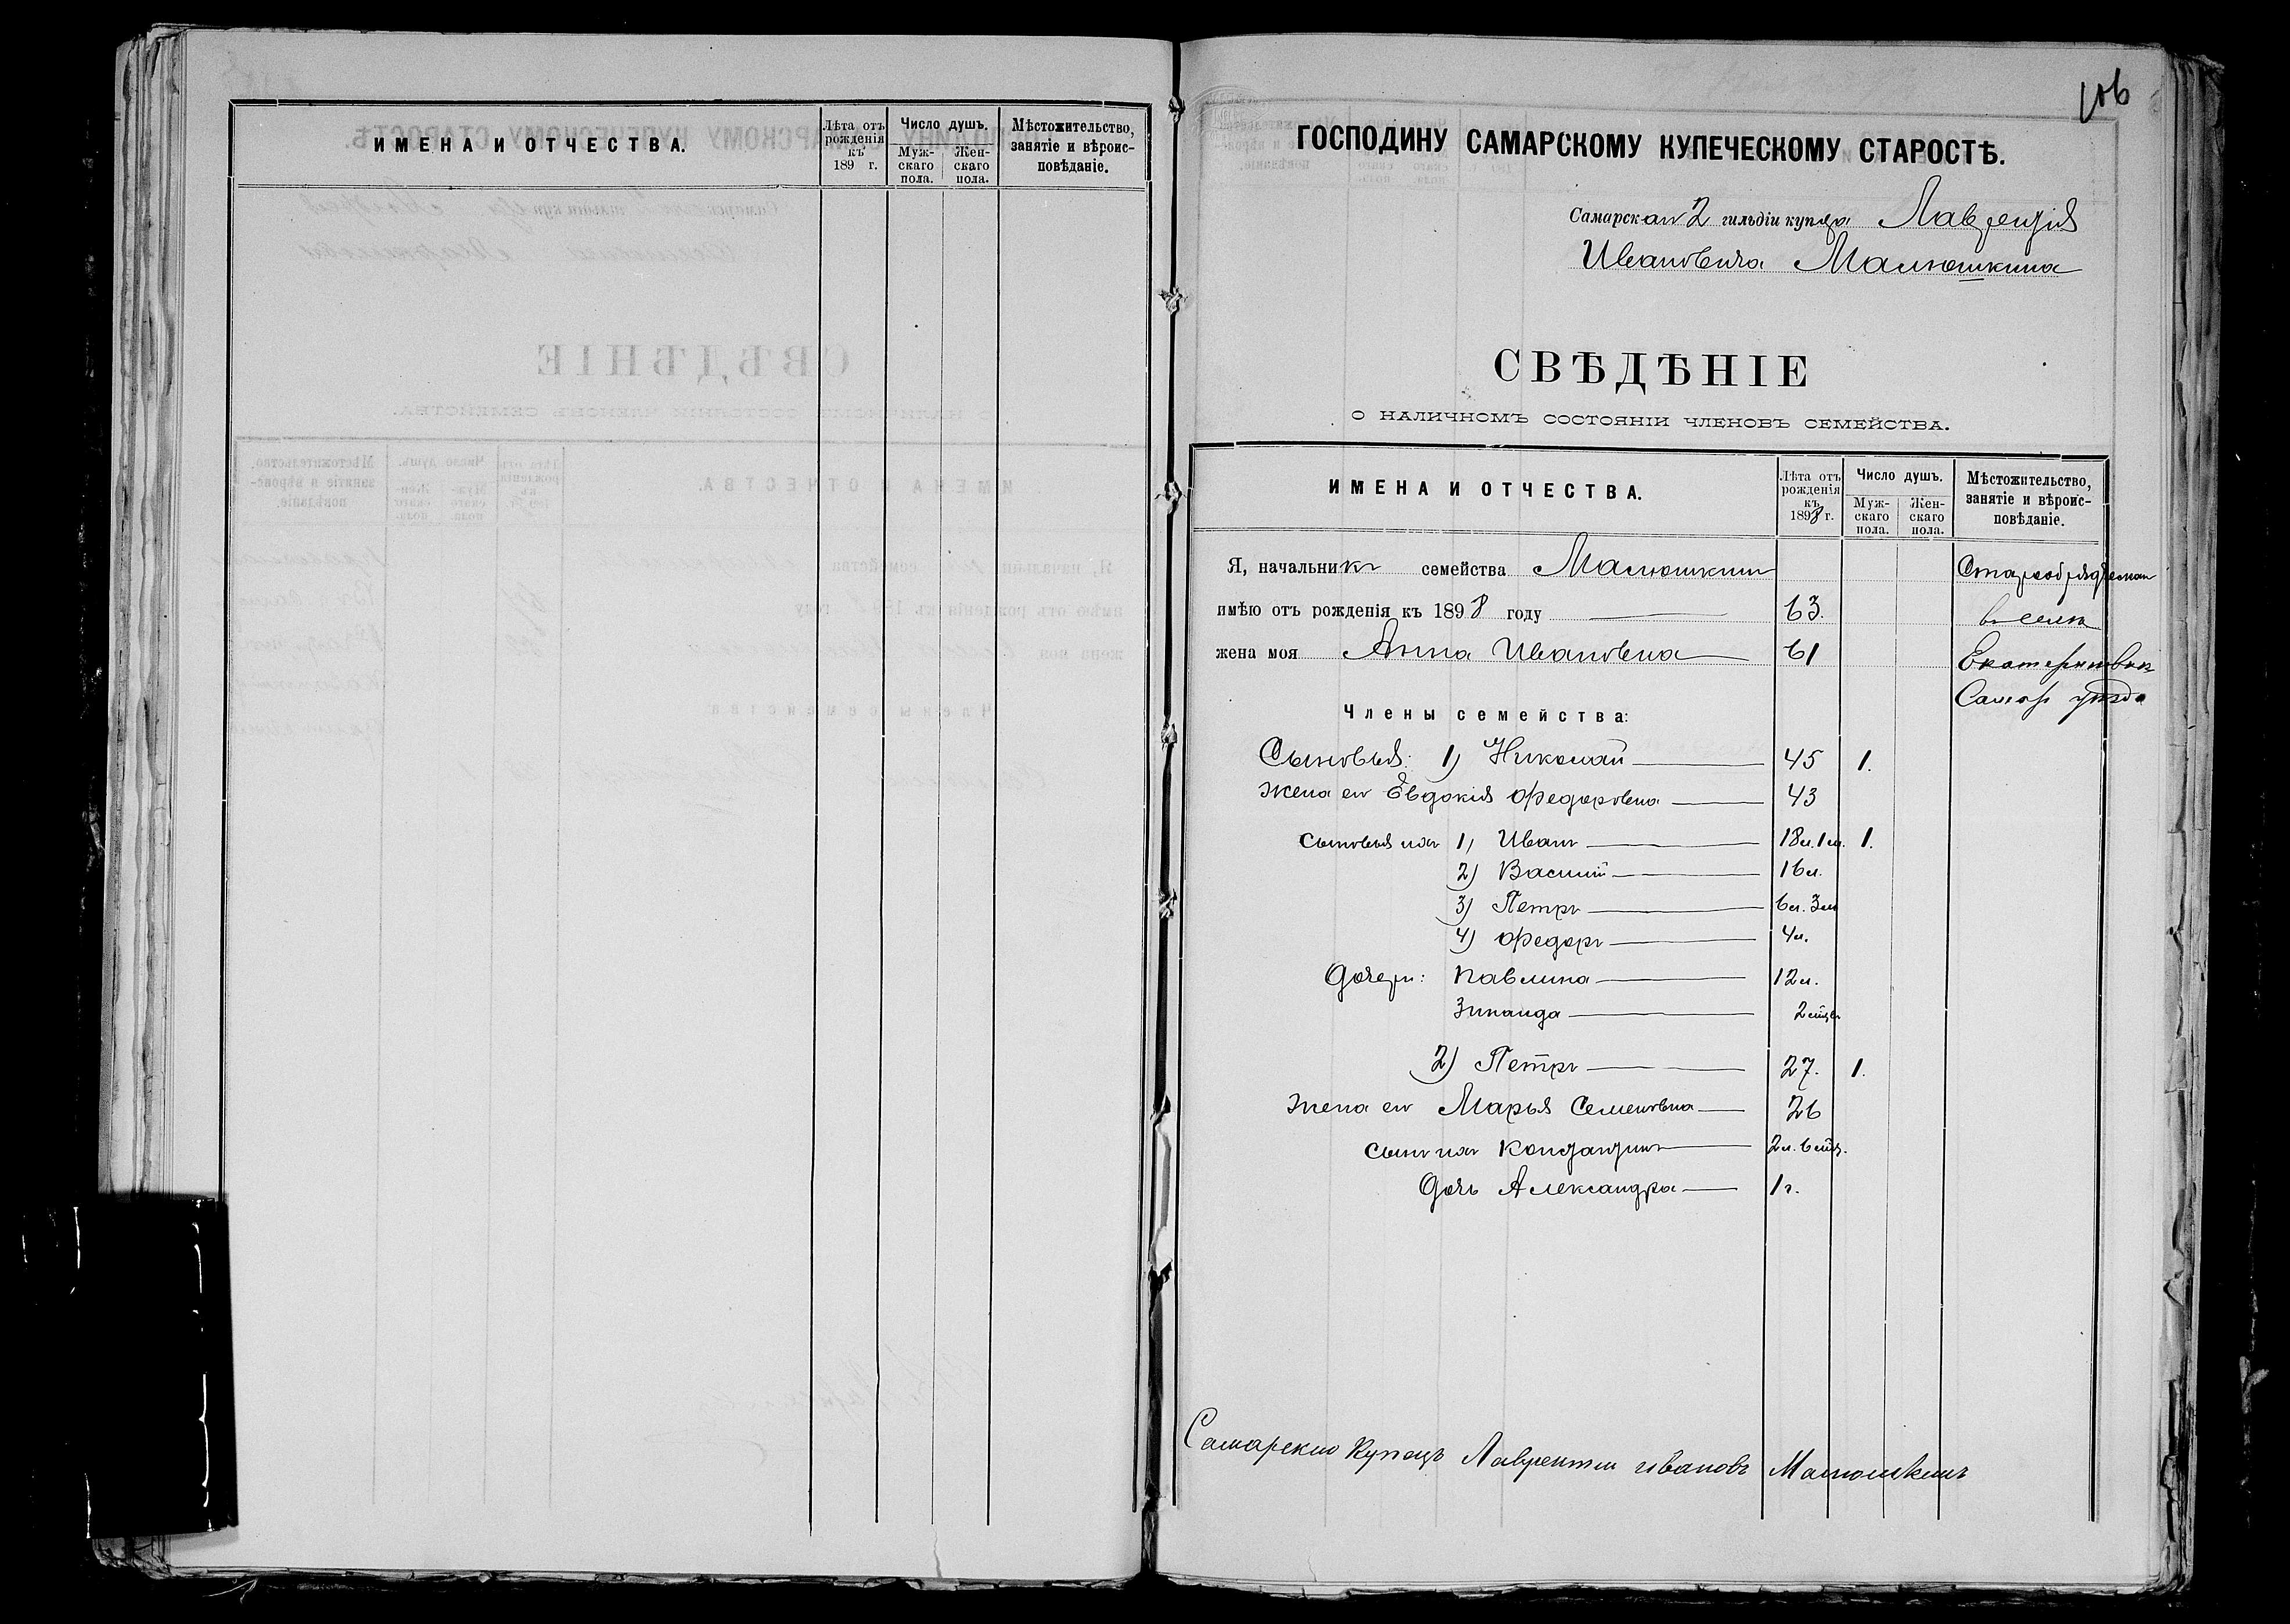 ИМЕНА И ОТЧЕСТВА.
Лѣта отъ рожденія къ 189 г.
Число душъ.
Мужскаго пола.
Женскаго пола.
Мѣстожительство, занятіе и вѣроисповѣданіе.
106
ГОСПОДИНУ САМАРСКОМУ КУПЕЧЕСКОМУ СТАРОСТѢ.
Самарскаго 2 гильдіи купца Лаврентія
Ивановича Малюшкина
СВѢДѢНІЕ
О НАЛИЧНОМЪ СОСТОЯНІИ ЧЛЕНОВЪ СЕМЕЙСТВА.
ИМЕНА И ОТЧЕСТВА.
Лѣта отъ рожденія къ 1898 г.
Число душъ.
Мужскаго пола.
Женскаго пола.
Мѣстожительство, занятіе и вѣроисповѣданіе.
Я, начальникъ семейства Малюшкинъ
имѣю отъ рожденія къ 1898 году 63.
въ селѣ
жена моя Анна Ивановна 61
Екатериновкѣ
Самар уѣзда
Члены семейства:
Сыновья: 1) Николай 45 1.
жена его Евдокія Федоровна 43
сыновья ихъ 1) Иванъ 18л. 1м. 1.
2) Василій 16л.
3) Петръ 6л. 3м
4) Федоръ 4л.
Дочери: Павлина 12л.
Зинаида
2) Петръ 27. 1.
жена его Марья Семеновна 26
сынъ ихъ Константинъ
Дочь Александра 1г.
Самарскио Купецъ Лаврентии ивановъ Малюшкинъ